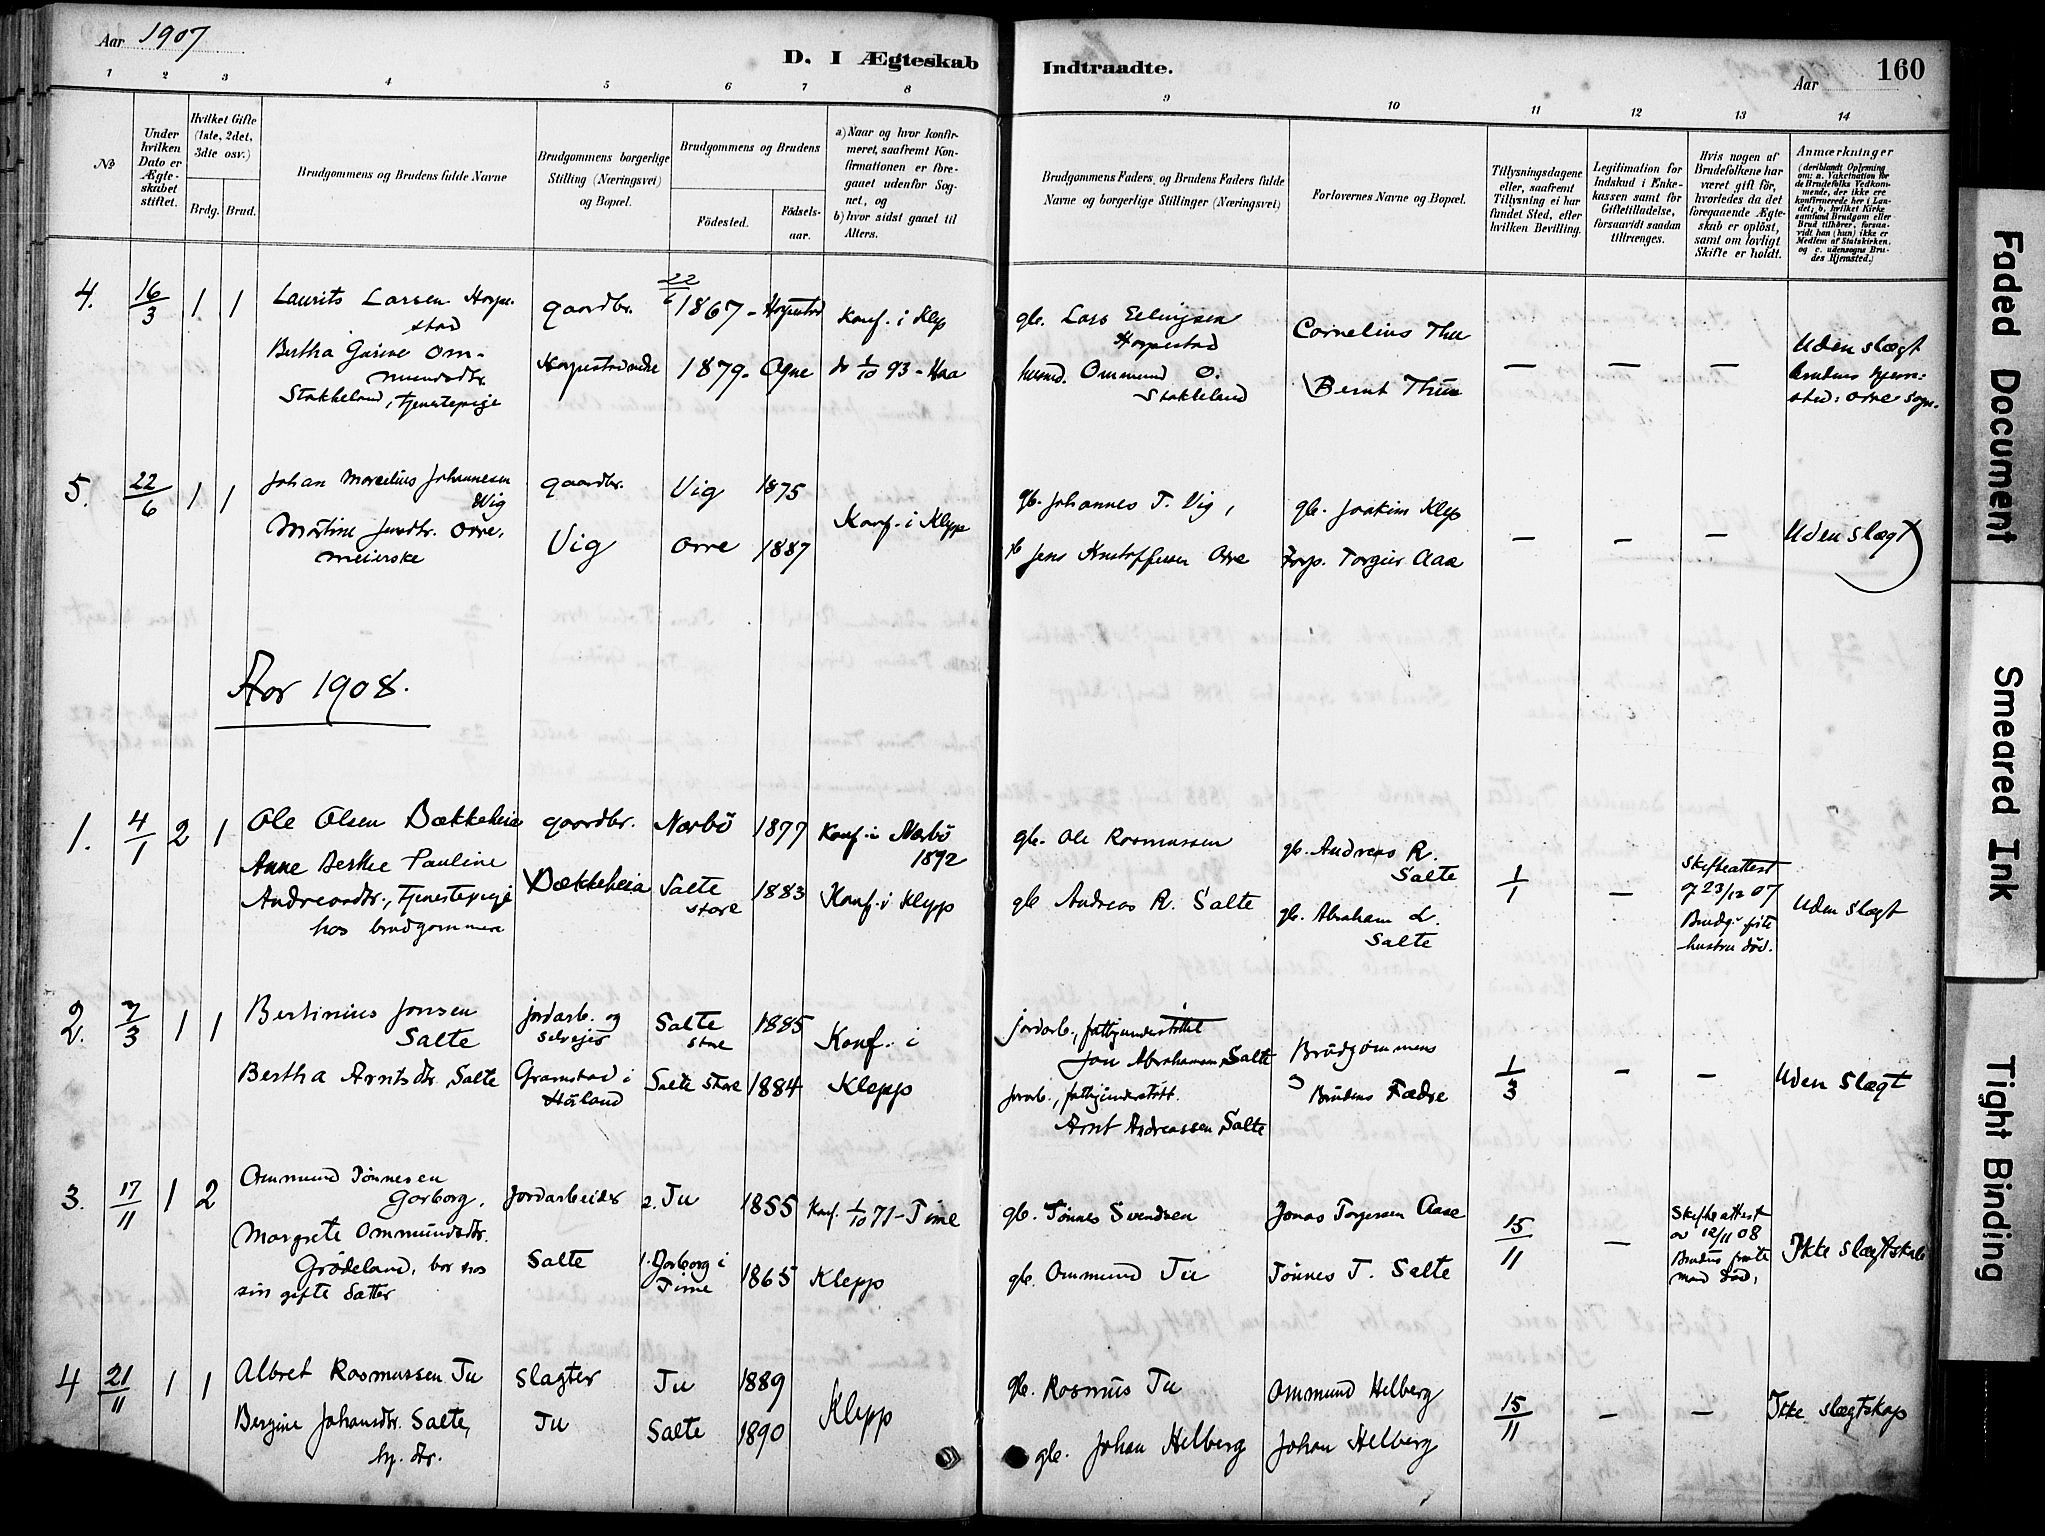 Aar 1907
D. I Ægteskab
Indtraadte.
Aar
160
1 2 3 4 5 6 7 8 9 10 11 12 13 14
№
Under hvilken Dato er Ægteskabet stiftet.
Hvilket Gifte (1ste, 2det, 3die osv.)
Brdg. Brud.
Brudgommens og Brudens fulde Navne
Brudgommens borgerlige Stilling (Næringsvei) og Bopæl.
Brudgommens og Brudens
Födested.
Födsels-aar.
a) Naar og hvor konfirmeret, saafremt Konfirmationen er foregaaet udenfor Sognet, og
b) hvor sidst gaaet til Alters.
Brudgommens Faders, og Brudens Faders fulde Navne og borgerlige Stillinger (Næringsvei)
Forlovernes Navne og Bopæl.
Tillysningsdagene eller, saafremt Tillysning ei har fundet Sted, efter hvilken Bevilling.
Legitimation for Indskud i Enkekassen samt for Giftetilladelse, forsaavidt saadan tiltrænges.
Hvis nogen af Brudefolkene har været gift för, hvorledes da det foregaaende Ægteskab er oplöst, samt om lovligt Skifte er holdt.
Anmærkninger
(deriblandt Oplysning om: a. Vakcination for de Brudefolks Vedkommende, der ikke ere konfirmerede her i Landet; b. hvilket Kirkesamfund Brudgom eller Brud tilhörer, forsaavidt han (hun) ikke er Medlem af Statskirken, og c. udensogns Brudes Hjemsted.)
4. 16/3 1 1
Laurits Larsen Horpestad
gaardbr.
22/6 1867 - Horpestad
Konf. i Klp
gb. Lars Erlingsen Horpestad
Cornelius Thu
Bertha Gurine Ommundsdtr. Stokkeland, tjenestepige
1879 - Ogne
do 1/10 93 - Haa
husmd. Ommund O. Stokkeland
Bernt Thu
— — —
Uden slægt
brudens hjemsted: Orre sogn.
5. 22/6 1 1
Johan Marcelius Johannesen Vig
gaardbr.
Vig 1875
Konf. i Klepp
gb. Johannes T. Vig,
gb. Joakim Klep
Martine Jensdtr. Orre, meierske
Vig
Orre 1887
Jens Kristoffersen Orre
Forp. Torger Aase
— — —
Uden slægt
Aar 1908.
1. 4/1 2 1
Ole Olsen Bækkeheia
gaardbr.
Nærbö 1877
Konf. i Nærbö 1892
gb. Ole Rasmussen
gb. Andreas R. Salte
Anne Berthe Pauline Andreasdtr., tjenestepige hos brudgommen
Bækkeheia
Salte store 1883
Konf. i Klepp
gb Andreas R. Salte
gb. Abraham L. Salte
1/1 —
Skifteattest
af 23/12 07
Brudg. förste
hustru död.
Uden slægt
2. 7/3 1 1
Bertinius Jonsen Salte
jordarb. og selveier
Salte store 1885
Konf. i Klepp
jordarb., fattigunderstöttet
Jon Abrahamsen Salte
Brudgommens
Bertha Arntsdtr. Salte
Gramstad i Höiland
Salte store 1884
jorarb., fattigunderstött.
Arnt Andreassen Salte
Brudens Fædre
1/3 — —
Uden slægt
3. 17/11 1 2
Ommund Tönnesen Gorborg,
Jordarbeider
2. Tu 1855
Konf. 1/10 71 - Time
gb. Tönnes Svendsen
Jonas Torgersen Aase
Margrete Ommundsdtr. Grödeland, bor hos sin gifte datter
Salte
1. Gorborg i Time 1865
Klepp
gb. Ommund Tu
Tönnes T. Salte
15/11 —
Skifteattest
av 12/11 08
Brudens förste
mand död,
Ikke slægtskab
4 21/11 1 1
Albret Rasmussen Tu
Slagter
Tu 1889
Klepp
gb. Rasmus Tu
Ommund Helberg
Bergine Johansdtr. Salte,
hj. dtr.
Tu
Salte 1890
gb. Johan Helberg
Johan Helberg
15/11 — —
Ikke slægtskap
Faded Document
Smeared Ink
Tight Binding